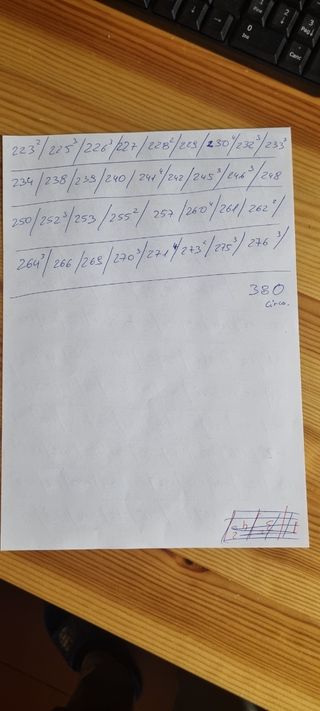 223²/225³/226³/227/228²/229/230⁴/232³/233²
234/238/239/240/241⁴/242/245³/246³/248
250/252³/253/255²/257/260⁴/261/262²/
264³/266/269/270³/271⁴/273²/275³/276³/
380